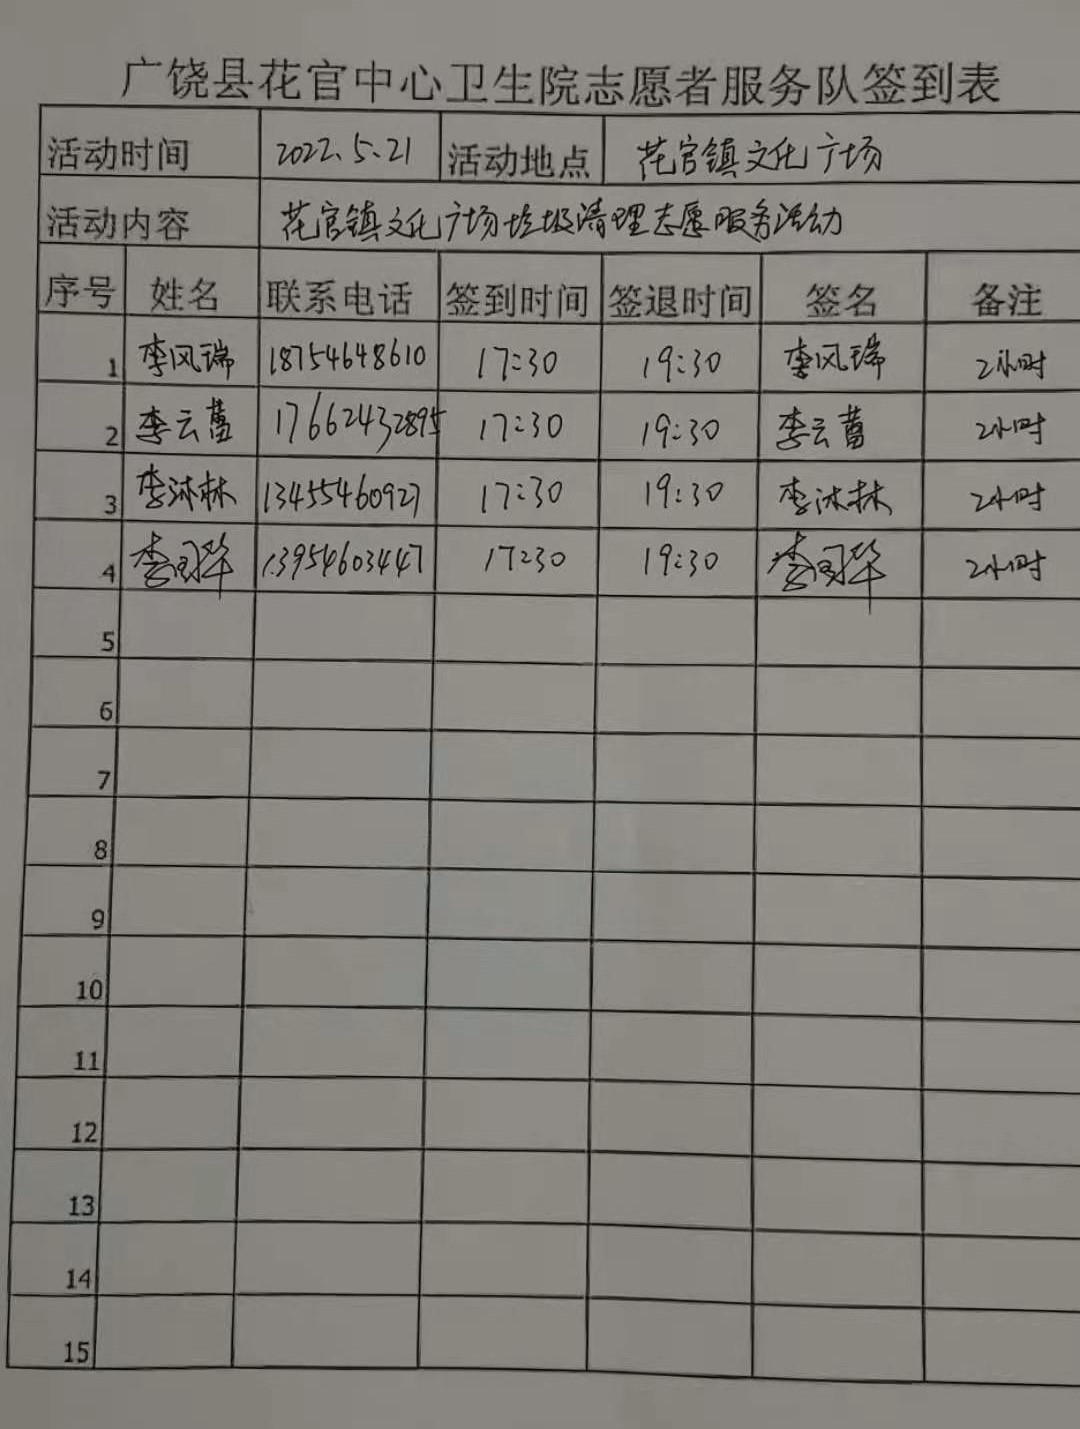 广饶县花官中心卫生院志愿者服务队签到表
活动时间 2022.5.21 活动地点 花官镇文化广场
活动内容 花官镇文化广场垃圾清理志愿服务活动
序号 姓名 联系电话 签到时间 签退时间 签名 备注
1 李风瑞 18754648610 17:30 19:30 李风瑞 2小时
2 李云 17662432895 17:30 19:30 李云 2小时
3 李沐林 13455460927 17:30 19:30 李沐林 2小时
4 李 华 13954603447 17:30 19:30 李 华 2小时
5
6
7
8
9
10
11
12
13
14
15